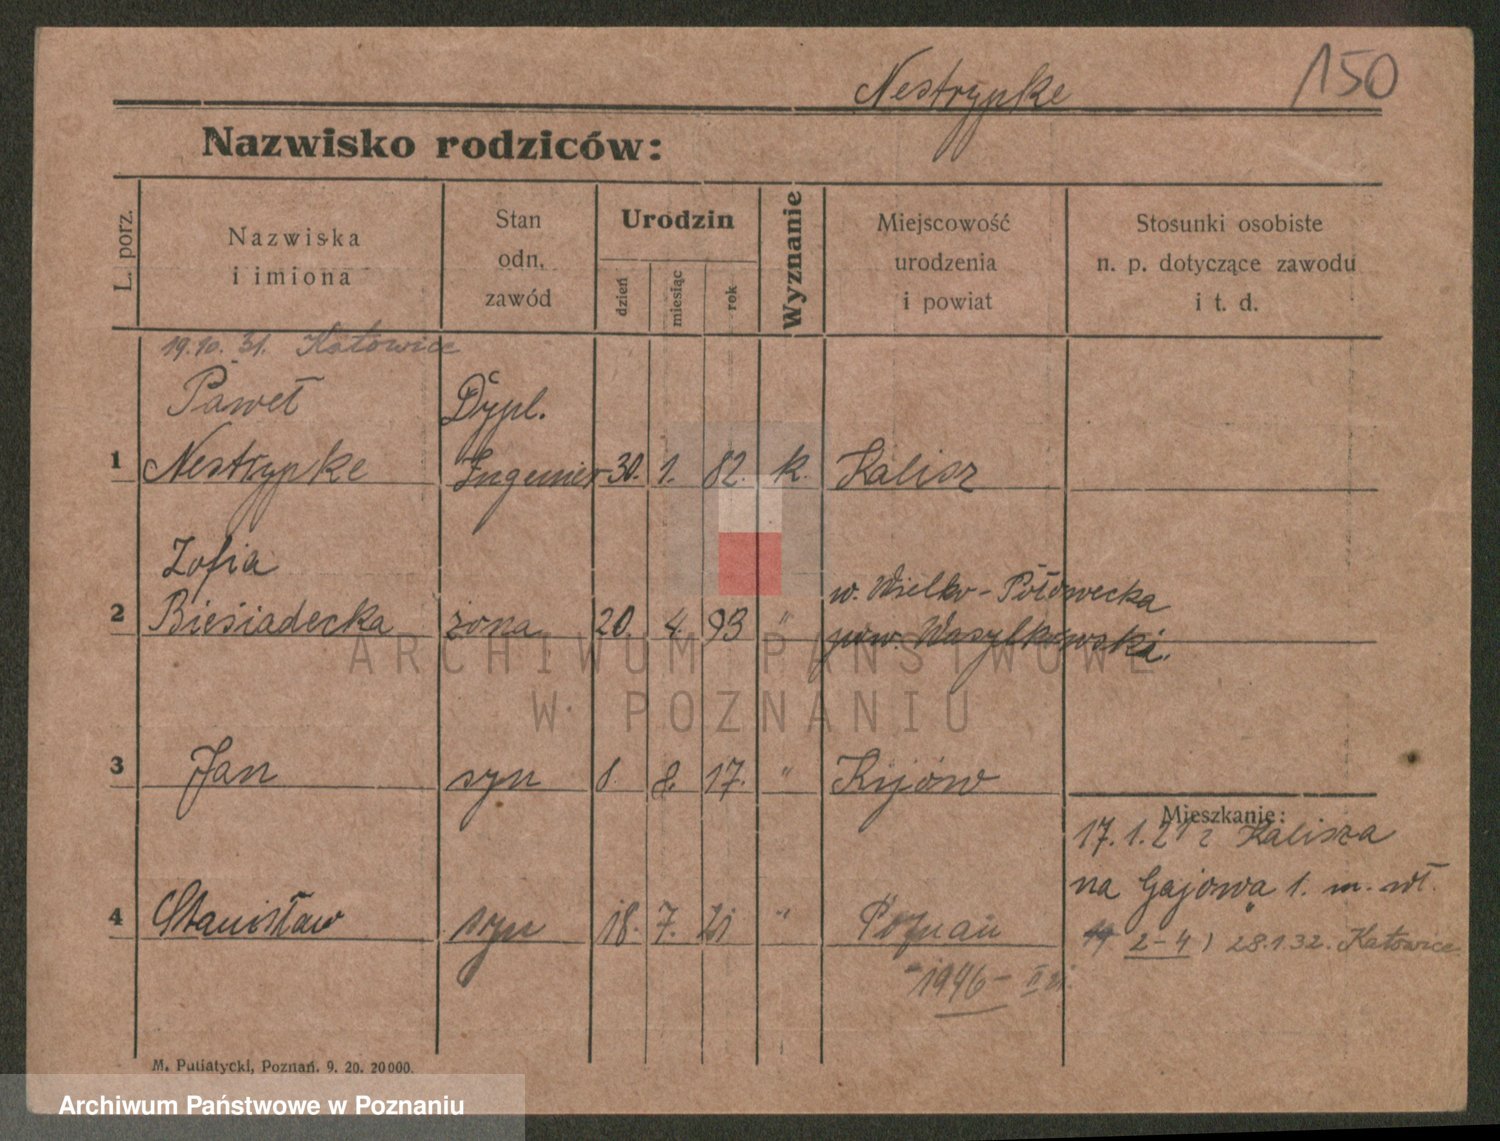 Nestrypke
150
Nazwisko rodziców:
L. porz.
Nazwiska
i imiona
Stan
odn.
zawód
Urodzin
dzień
miesiąc
rok
Wyznanie
Miejscowość
urodzenia
i powiat
Stosunki osobiste
n. p. dotyczące zawodu
i t. d.
19.10.31. Katowice
Paweł Dypl.
1 Nestrypke 30. 1. 82. k. Kalisz
Zofia
w. Wielko-Połowecka
2 Biesiadecka żona 20. 4. 93 "
pow. Wasylkowski.
3 Jan syn 8. 8. 17. " Kijów
Mieszkanie:
17.1.21 z Kalisza
na Gajowa 1. m. wł.
4 Stanisław syn 18. 7. 21 " Poznań
2-4) 28.1.32. Katowice
1946 -
M. Putiatycki, Poznań. 9. 20. 20000.
ARCHIWUM PAŃSTWOWE
W POZNANIU
Archiwum Państwowe w Poznaniu